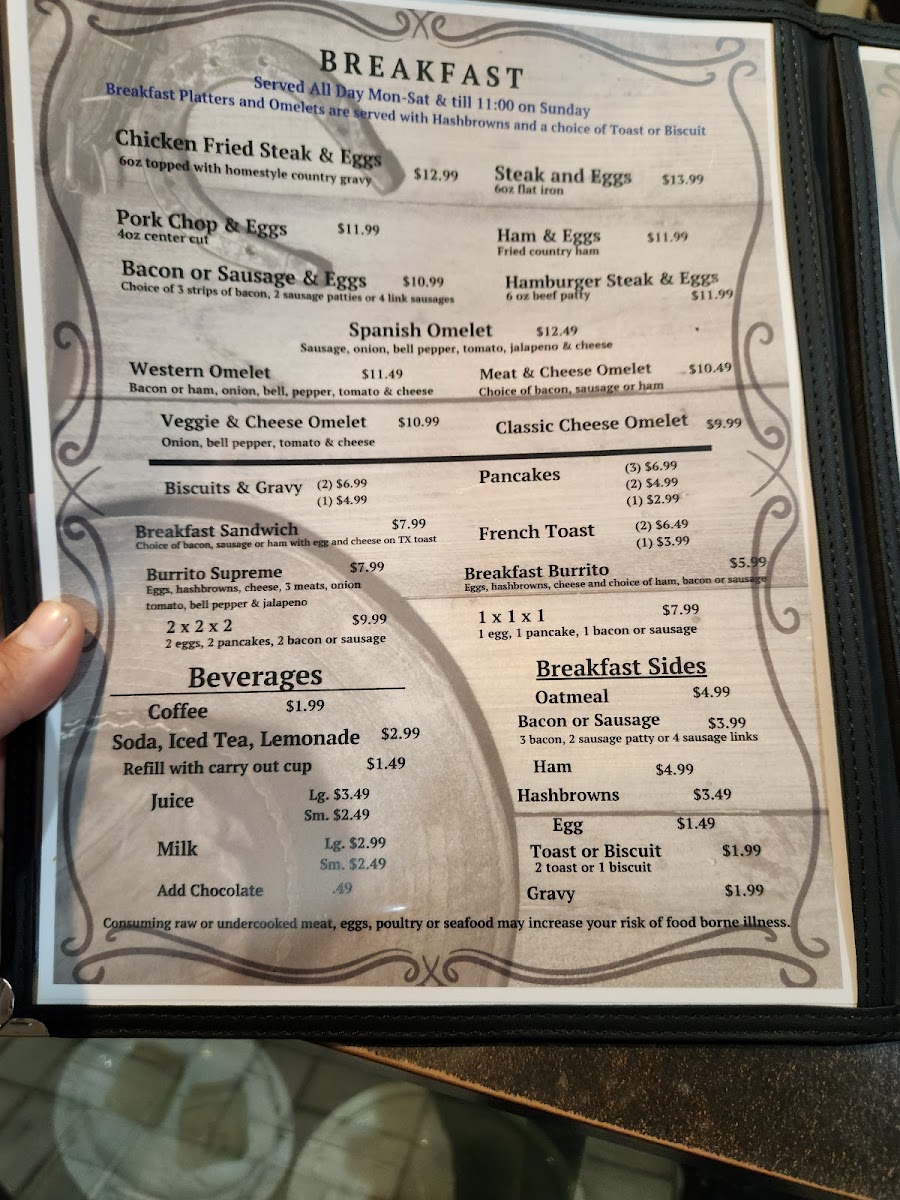 BREAKFAST
Served All Day Mon-Sat & till 11:00 on Sunday
Breakfast Platters and Omelets are served with Hashbrowns and a choice of Toast or Biscuit
Chicken Fried Steak & Eggs $12.99
6oz topped with homestyle country gravy
Steak and Eggs $13.99
6oz flat iron
Pork Chop & Eggs $11.99
4oz center cut
Ham & Eggs $11.99
Fried country ham
Bacon or Sausage & Eggs $10.99
Choice of 3 strips of bacon, 2 sausage patties or 4 link sausages
Hamburger Steak & Eggs
6 oz beef patty $11.99
Spanish Omelet $12.49
Sausage, onion, bell pepper, tomato, jalapeno & cheese
Western Omelet $11.49
Bacon or ham, onion, bell, pepper, tomato & cheese
Meat & Cheese Omelet $10.49
Choice of bacon, sausage or ham
Veggie & Cheese Omelet $10.99
Onion, bell pepper, tomato & cheese
Classic Cheese Omelet $9.99
Biscuits & Gravy (2) $6.99
(1) $4.99
Pancakes (3) $6.99
(2) $4.99
(1) $2.99
Breakfast Sandwich $7.99
Choice of bacon, sausage or ham with egg and cheese on TX toast
French Toast (2) $6.49
(1) $3.99
Burrito Supreme $7.99
Eggs, hashbrowns, cheese, 3 meats, onion
tomato, bell pepper & jalapeno
Breakfast Burrito $5.99
Eggs, hashbrowns, cheese and choice of ham, bacon or sausage
2 x 2 x 2 $9.99
2 eggs, 2 pancakes, 2 bacon or sausage
1 x 1 x 1 $7.99
1 egg, 1 pancake, 1 bacon or sausage
Beverages
Coffee $1.99
Soda, Iced Tea, Lemonade $2.99
Refill with carry out cup $1.49
Juice Lg. $3.49
Sm. $2.49
Milk Lg. $2.99
Sm. $2.49
Add Chocolate .49
Breakfast Sides
Oatmeal $4.99
Bacon or Sausage $3.99
3 bacon, 2 sausage patty or 4 sausage links
Ham $4.99
Hashbrowns $3.49
Egg $1.49
Toast or Biscuit $1.99
2 toast or 1 biscuit
Gravy $1.99
Consuming raw or undercooked meat, eggs, poultry or seafood may increase your risk of food borne illness.